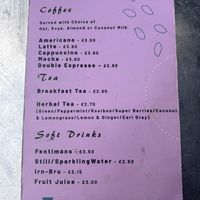 Coffee
Served with Choice of
Oat, Soya, Almond or Coconut Milk
Americano - £2.60
Latte - £2.80
Cappuccino - £2.80
Mocha - £3.50
Double Espresso - £2.50
Tea
Breakfast Tea - £2.50
Herbal Tea - £2.70
(Green/Peppermint/Rooibos/Super Berries/Coconut
& Lemongrass/Lemon & Ginger/Earl Grey)
Soft Drinks
Fentimans - £3.50
Still/SparklingWater - £2.50
Irn-Bru - £3.15
Fruit Juice - £2.00